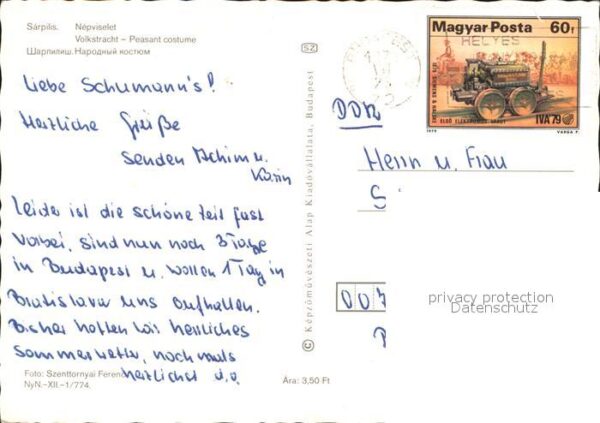 Sárpilis. Népviselet
Volkstracht – Peasant costume
Шарпилиш. Народный костюм
Liebe Schumann's!
Herzliche Grüße
senden Achim u.
Karin
Leider ist die schöne Zeit fast
vorbei, sind nun noch 3 Tage
in Budapest u. wollen 1 Tag in
Bratislava uns aufhalten.
Bisher hatten wir herrliches
Sommerwetter, nochmals
herzlichst d.o.
Foto: Szenttornyai Ferenc
NyN.–XII.–1/774.
Ára: 3,50 Ft
SZ
© Képzőművészeti Alap Kiadóvállalata, Budapest
Magyar Posta 60f
HELYES
ELSŐ ELEKTROMOS
IVA 79
1979 VARGA P.
DDR
Herrn u. Frau
S
007
P
privacy protection
Datenschutz